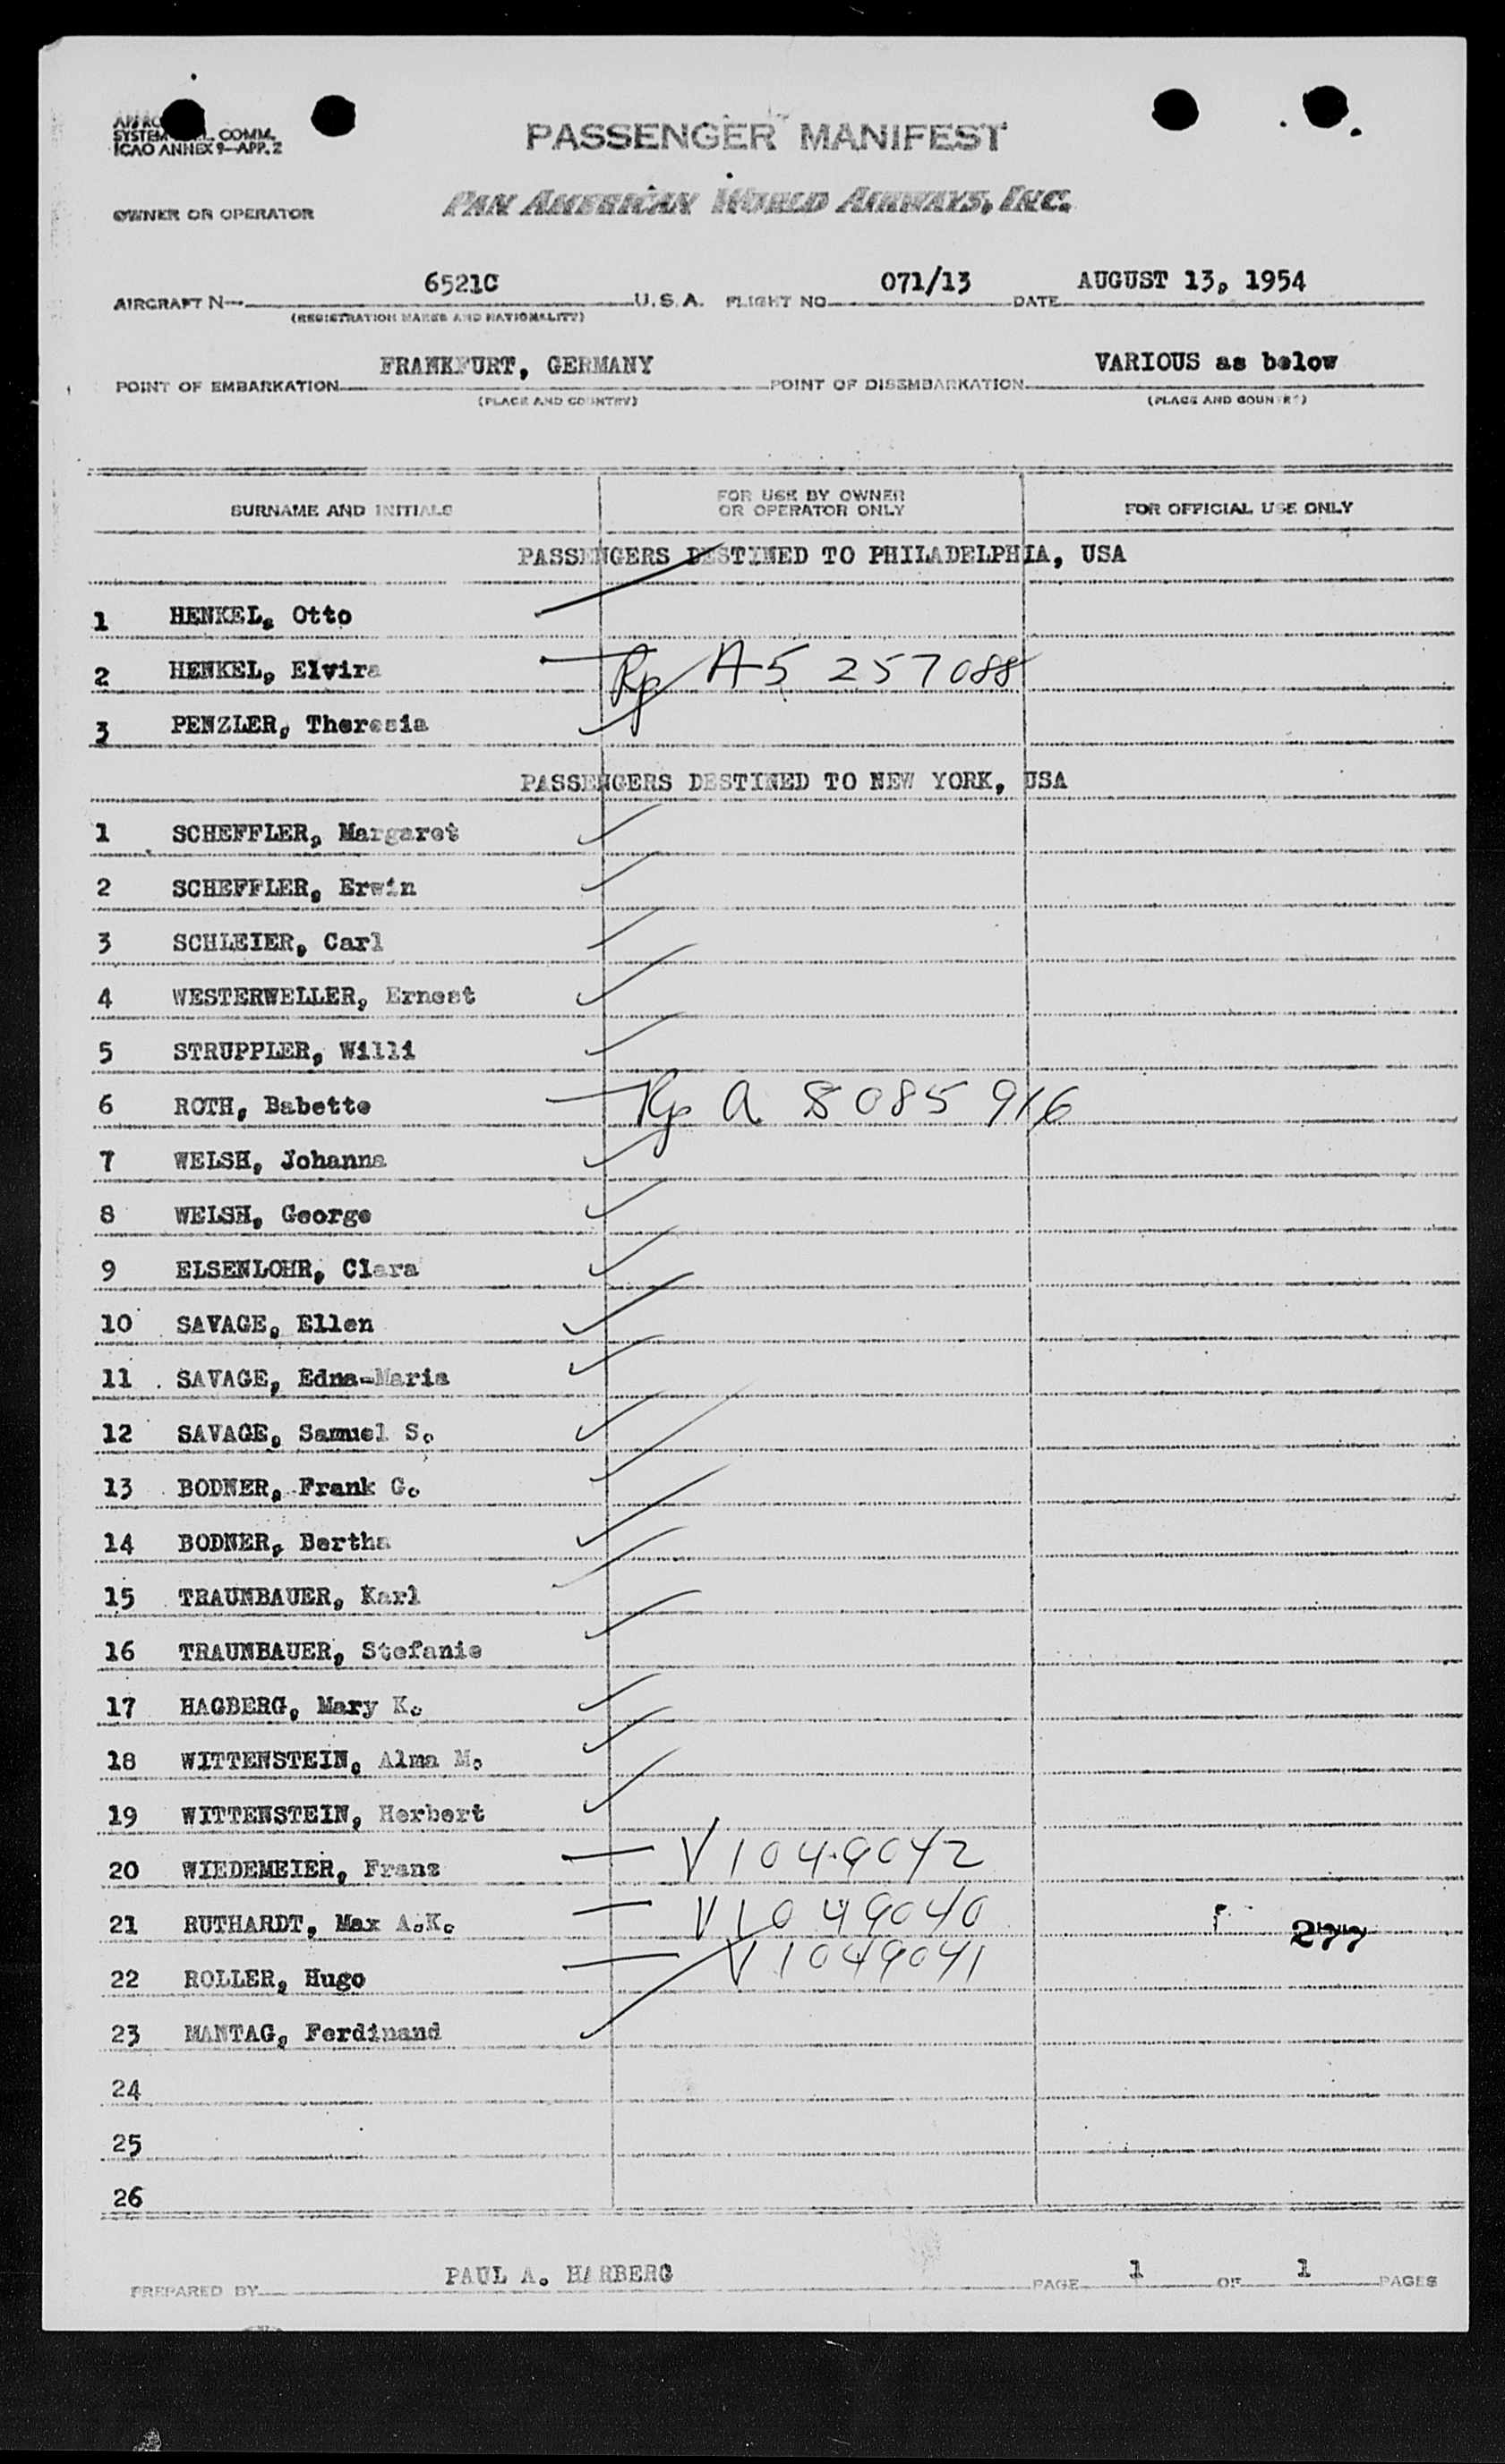 SYSTEM COMM.
ICAO ANNEX 9—APP. 2
PASSENGER MANIFEST
OWNER OR OPERATOR PAN AMERICAN WORLD AIRWAYS, INC.
AIRCRAFT N— 6521C U.S.A. FLIGHT NO. 071/13 DATE AUGUST 13, 1954
(REGISTRATION MARKS AND NATIONALITY)
POINT OF EMBARKATION FRANKFURT, GERMANY POINT OF DISEMBARKATION VARIOUS as below
(PLACE AND COUNTRY) (PLACE AND COUNTRY)
SURNAME AND INITIALS FOR USE BY OWNER OR OPERATOR ONLY FOR OFFICIAL USE ONLY
PASSENGERS DESTINED TO PHILADELPHIA, USA
1 HENKEL, Otto
2 HENKEL, Elvira Rp A5 257088
3 PENZLER, Theresia
PASSENGERS DESTINED TO NEW YORK, USA
1 SCHEFFLER, Margaret
2 SCHEFFLER, Erwin
3 SCHLEIER, Carl
4 WESTERWELLER, Ernest
5 STRUPPLER, Willi
6 ROTH, Babette Rp A 8085 916
7 WELSH, Johanna
8 WELSH, George
9 ELSENLOHR, Clara
10 SAVAGE, Ellen
11 SAVAGE, Edna-Maria
12 SAVAGE, Samuel S.
13 BODNER, Frank G.
14 BODNER, Bertha
15 TRAUNBAUER, Karl
16 TRAUNBAUER, Stefanie
17 HAGBERG, Mary K.
18 WITTENSTEIN, Alma M.
19 WITTENSTEIN, Herbert
20 WIEDEMEIER, Franz V1049042
21 RUTHARDT, Max A.K. V1049040 277
22 ROLLER, Hugo V1049041
23 MANTAG, Ferdinand
24
25
26
PREPARED BY PAUL A. HARBERG PAGE 1 OF 1 PAGES